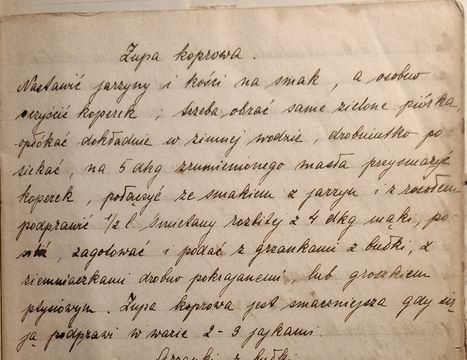 Zupa koprowa.
Nastawić jarzyny i kości na smak, a osobno
czyścić koperek, trzeba obrać same zielone piórka,
opłókać dokładnie w zimnej wodzie, drobniutko po
siekać, na 5 dkg zrumienionego masła przysmażyć
koperek, połączyć ze smakiem z jarzyn i z rosołem
podprawić 1/2 l. śmietany rozbitej z 4 dkg mąki, po-
, zagotować i podać z grzankami z bułki, z
ziemniaczkami drobno pokrajanemi, lub groszkiem
ptysiowym. Zupa koprowa jest smaczniejsza gdy się
ją podprawi w wazie 2-3 jajkami.
Grzanki z bułki.